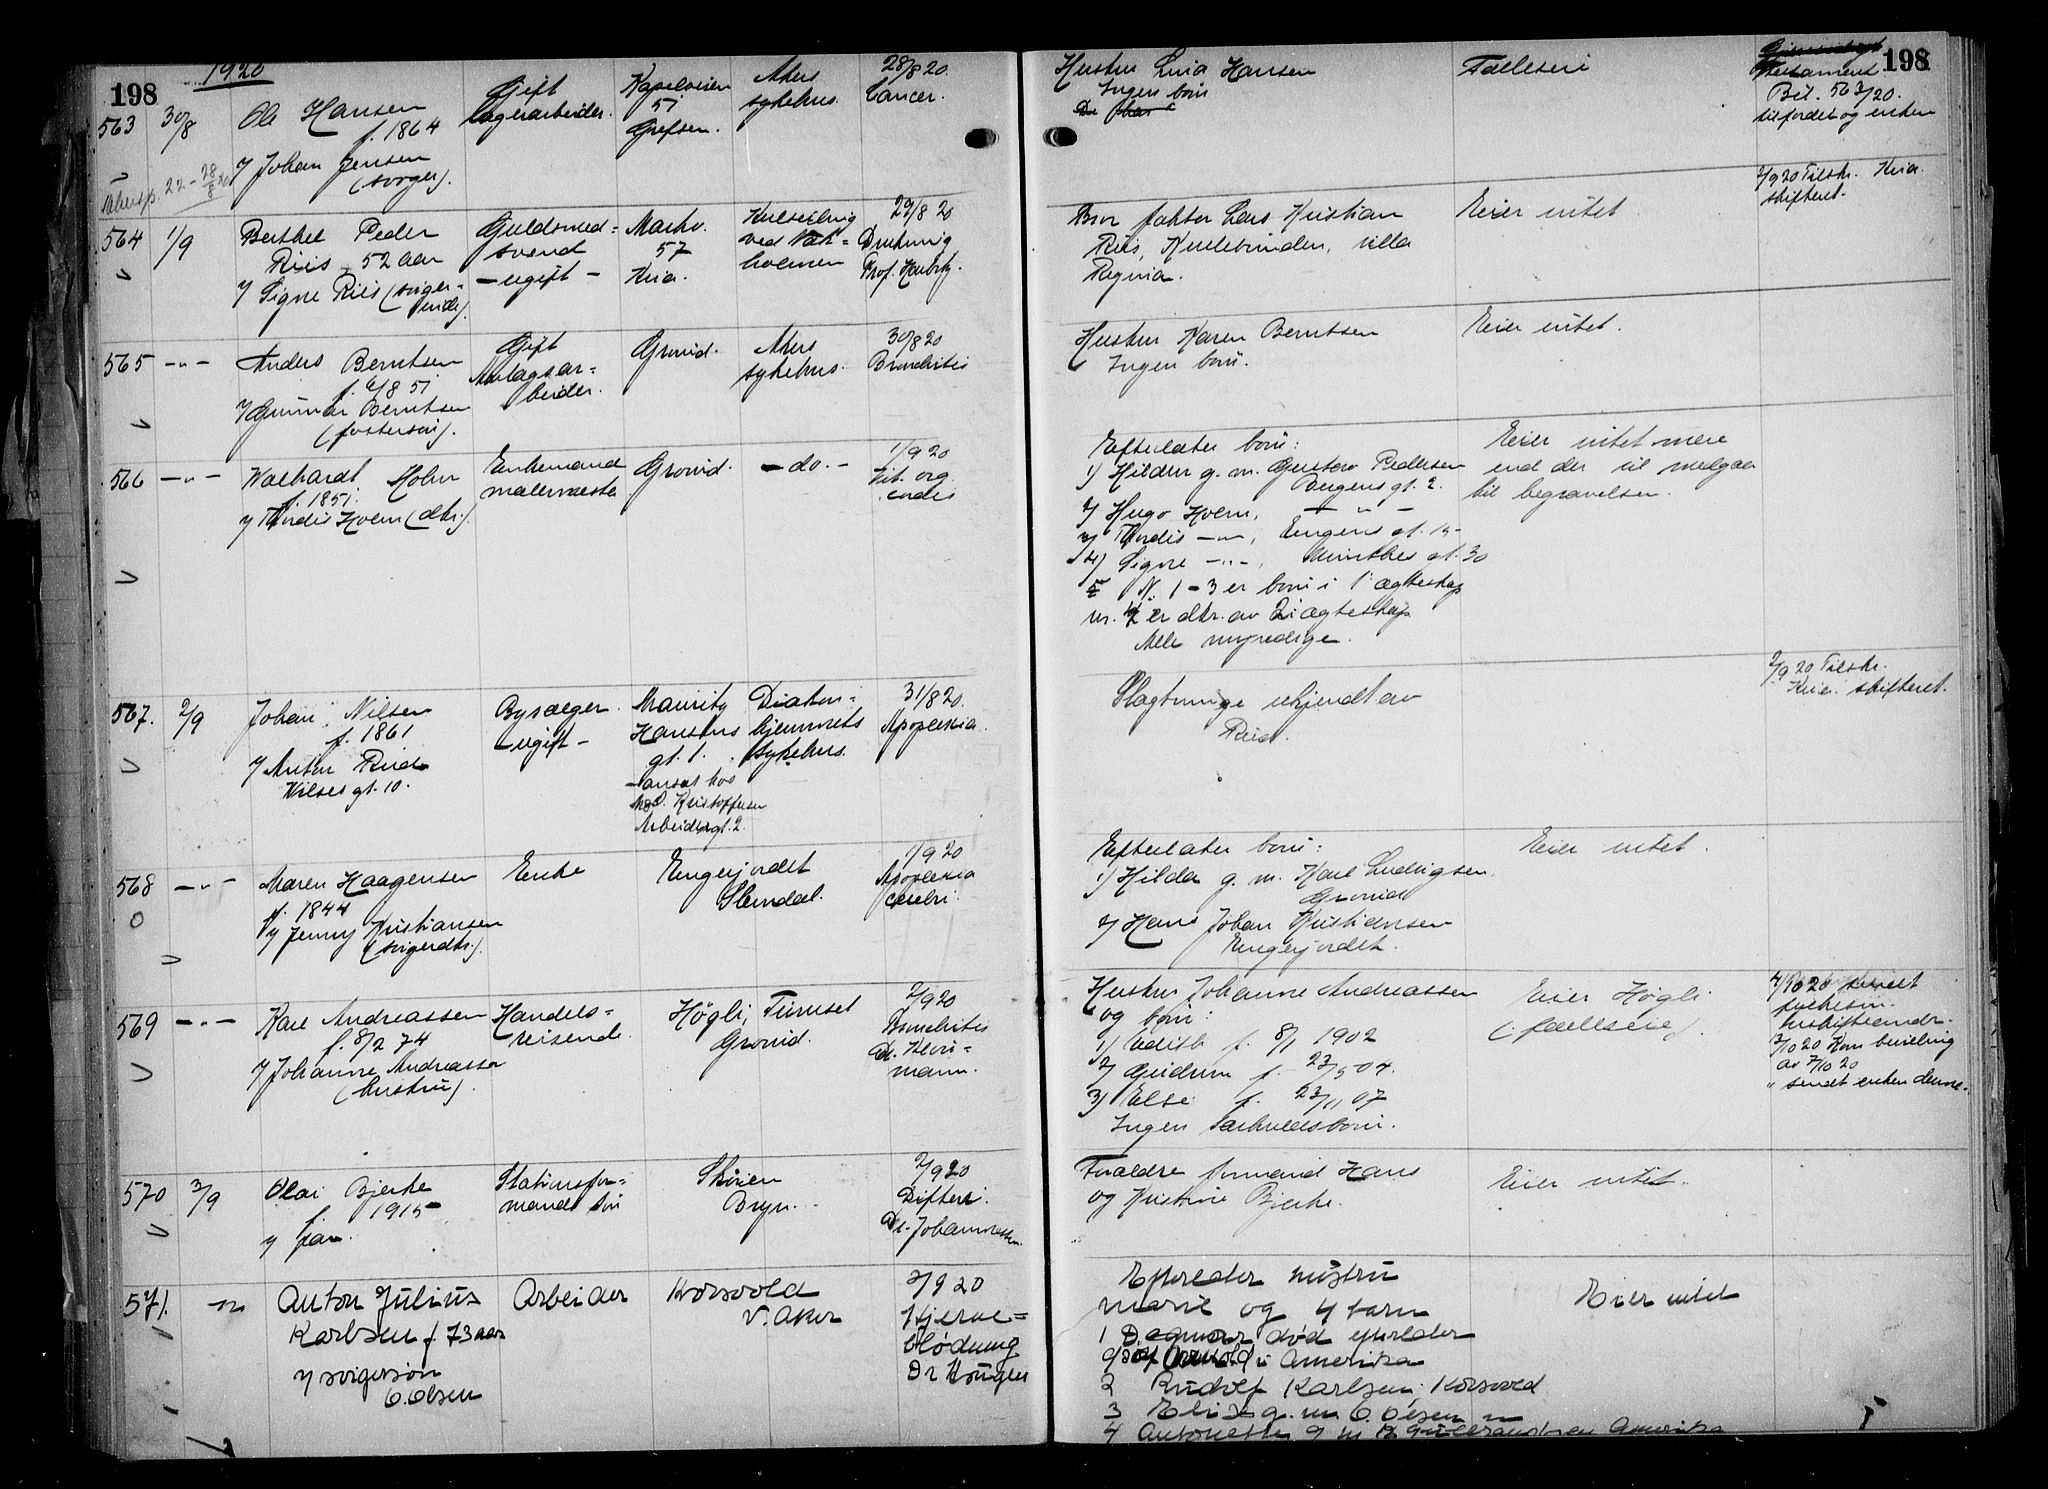 198
1920
198
563 30/8 Ole Hansen
f. 1864
v/ Johan Jensen
(svoger).
Gift
lagerarbeider.
Kapelveien
51
Grefsen.
Akers
sykehus.
28/8 20
Cancer.
Hustru Lina Hansen
Ingen barn
Fælleseie
Testament
Bil. 563/20.
564 1/9 Berthel Peder
Riis, 52 aar
v/ Signe Riis (sviger-
inde).
Guldsmed-
svend
- ugift -
Markv.
57
Kria.
ved
holmen
29/8 20
Drukning
Prof. Harbitz.
Bror faktor Lars Kristian
Riis, villa
Regina.
Eier intet
2/9 20 Tilskr. Kria.
skifteret.
565 -"- Anders Berntsen
f. 6/8 51
v/ Gunnar Berntsen
(fostersøn).
Gift
Anlægsar-
beider.
Grorud.
Akers
sykehus.
30/8 20
Bronchitis
Hustru Karen Berntsen
Ingen barn.
Eier intet.
566 -"- Walhardt Holm
f. 1851.
v/ Thordis Holm (dtr.).
Enkemand
malermester
Grorud.
- do. -
1/9 20
Vit. org.
cordis
Efterlater barn:
1) Hildur g. m. Gustav Pedersen
Bergens gt. 2.
2) Hugo Holm, - " -
3) Thordis -"-, Eugens gt. 15
4) Signe -"-, Munthes gt. 30
N. 1-3 er barn i 1 ægteskap
nr. 4 er dtr. av 2 ægteskap
Alle myndige.
Eier intet mere
end der vil medgaa
til begravelsen.
567. 2/9 Johan Nilsen
f. 1861
v/ Anton Ruud
Nilses gt. 10.
Bysælger
- ugift -
Mauritz
Hansens
gt. 1.
ansat hos
Kristoffersen
Arbeidergt. 2.
Diakon-
hjemmets
sykehus.
31/8 20.
Apoplexia.
Slagtninge ukjendt av
Ruud.
2/9 20 Tilskr.
Kria. skifteret.
568 -"- Maren Haagensen
f. 1844
v/ Jenny Kristiansen
(svigerdtr.)
Enke
Engerjordet
Slemdal.
1/9 20
Apoplexia
cerebri.
Efterlater barn:
1) Hilda g. m. Karl Ludvigsen
Grorud
2) Hans Johan Kristiansen
Engerjordet.
Eier intet.
569 -"- Karl Andreassen
f. 8/2 74
v/ Johanne Andreassen
(hustru).
Handels-
reisende.
Høgli, Furuset
Grorud.
2/9 20
Bronchitis
Dr.
mann.
Hustru Johanne Andreassen
og barn:
1) Edith f. 8/1 1902
2) Gudrun f. 23/5 04.
3) Else f. 23/11 07
Ingen særkuldsbarn.
Eier Høgli
(fælleseie).
7/10 20 Kom bevilling
av 7/10 20
" sendt enken denne.
570 3/9 Olai Bjerke
f. 1915
v/ far.
Stationsfor-
mands søn
Skøien
Bryn.
2/9 20
Difteri.
Dr. Johannessen.
Foræeldre formand Hans
og Kristine Bjerke.
Eier intet.
571. -"- Anton Julius
Karlsen f. 73 aar
v/ svigersøn
O. Olsen
Arbeider
Korsvold
V. Aker
2/9 20
Hjerne-
blødning
Dr Hougen
Efterlader hustru
Marie og 4 barn
1 Dagmar død efterlader
i Amerika
2 Rudolf Karlsen, Korsvold
3 Elise g. m. O. Olsen "
4 Antonette g m Gulbrandsen Amerika
Eier intet